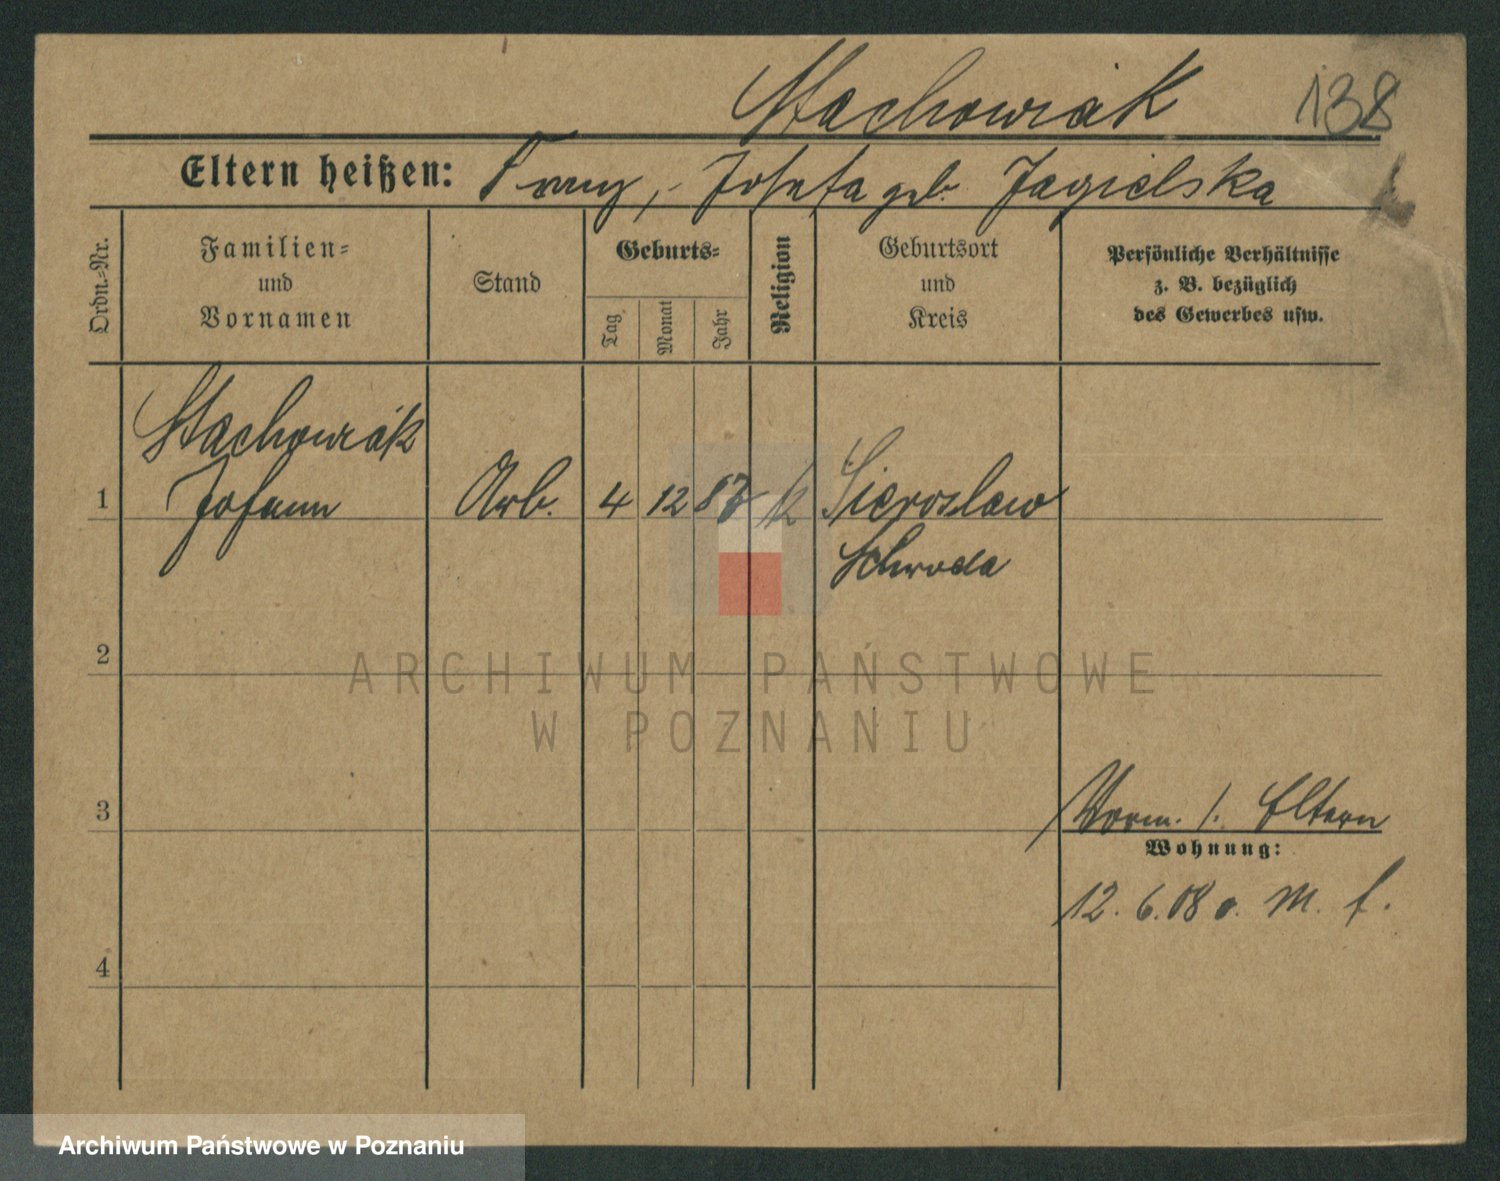 Stachowiak 138
Eltern heißen: Franz, Josefa geb. Jagielska
Ordn.-Nr.
Familien-
und
Vornamen
Stand
Geburts-
Tag
Monat
Jahr
Religion
Geburtsort
und
Kreis
Persönliche Verhältnisse
z. B. bezüglich
des Gewerbes usw.
Stachowiak
1 Johann Arb. 4 12 87 k Sieroslaw
Schroda
2
ARCHIWUM PAŃSTWOWE
W POZNANIU
3
Vorm. /. Eltern
Wohnung:
12. 6. 08 M. f.
4
Archiwum Państwowe w Poznaniu